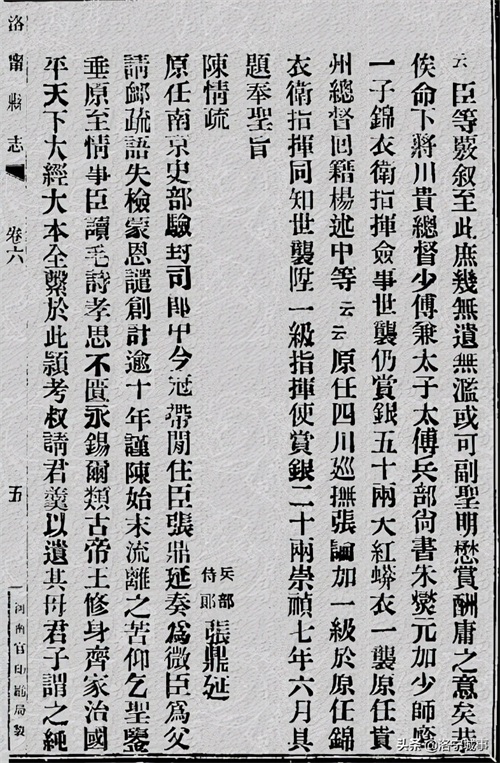 云臣等覈叙至此庶幾無遺無濫或可副聖明懋賞酬庸之意矣恭
俟命下將川貴總督少傅兼太子太傅兵部尚書朱燮元加少師廕
一子錦衣衛指揮僉事世襲仍賞銀五十兩大紅蟒衣一襲原任貴
州總督回籍楊述中等云云原任四川巡撫張論加一級於原任錦
衣衛指揮同知世襲陞一級指揮使賞銀二十兩崇禎七年六月具
題奉聖旨
陳情疏
兵部侍郎張鼎延
原任南京吏部驗封司郎中今冠帶閒住臣張鼎延奏為微臣為父
請䘏疏語失檢蒙恩譴創計逾十年謹陳始末流離之苦仰乞聖鑒
垂原至情事臣讀毛詩孝思不匱永錫爾類古帝王修身齊家治國
平天下大經大本全繫於此潁考叔請君羹以遺其母君子謂之純
洛甯縣志
卷六
五
河南官印刷局製
头条@洛宁城事